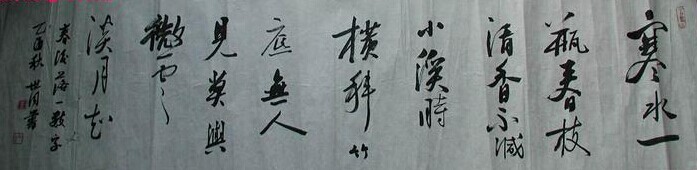 寒水一
瓶春枝
清香不減
小溪時
橫斜竹
底無人
見莫與
微雲
淡月知
春後落一數字
乙酉秋世書